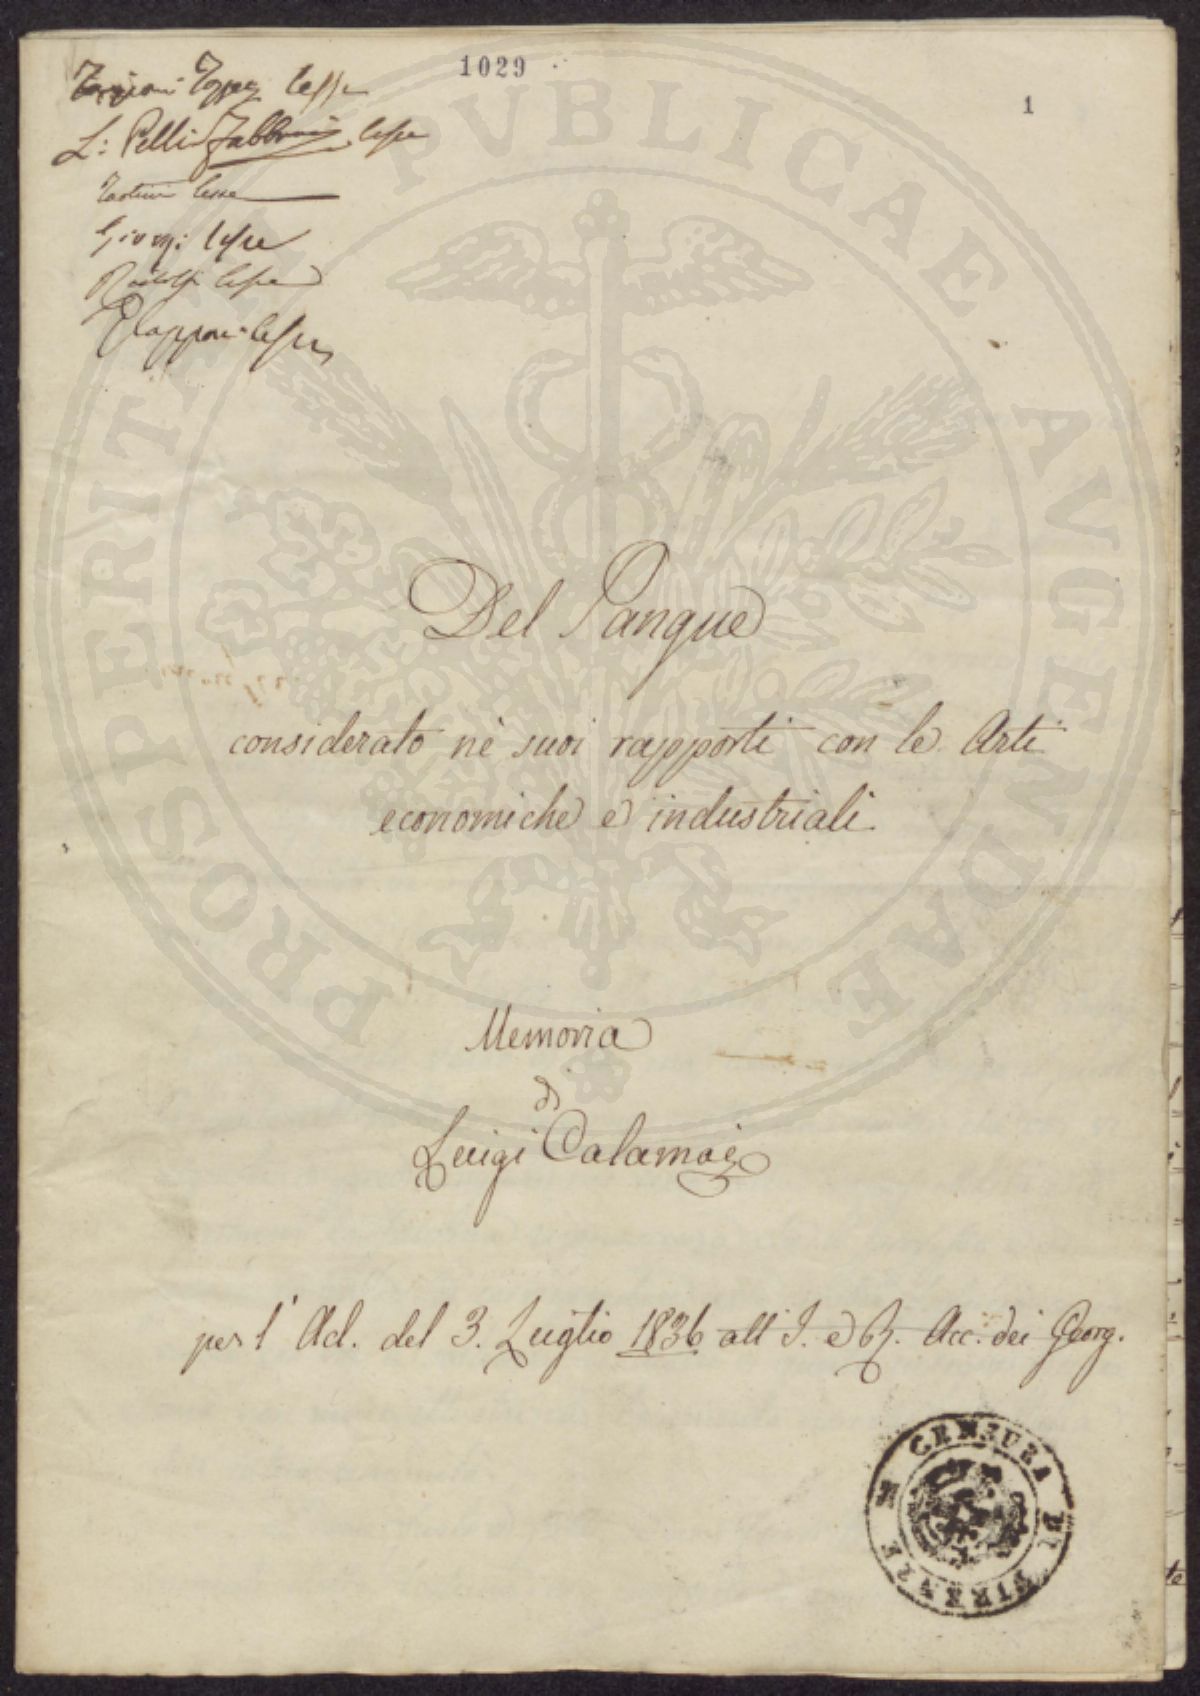 1029
1
Targioni Tozzetti lesse
L: Pelli Fabbroni lesse
Tartini lesse
Giorgi lesse
Ridolfi lesse
GCapponi lesse
Del Sangue
considerato ne' suoi rapporti con le Arti
economiche e industriali
Memoria
di
Luigi Calamai
per l' Ad. del 3. Luglio 1836 all' I. e R. Acc. dei Georg.
CENSURA DI FIRENZE
PROSPERITATI PVBLICAE AVGENDAE